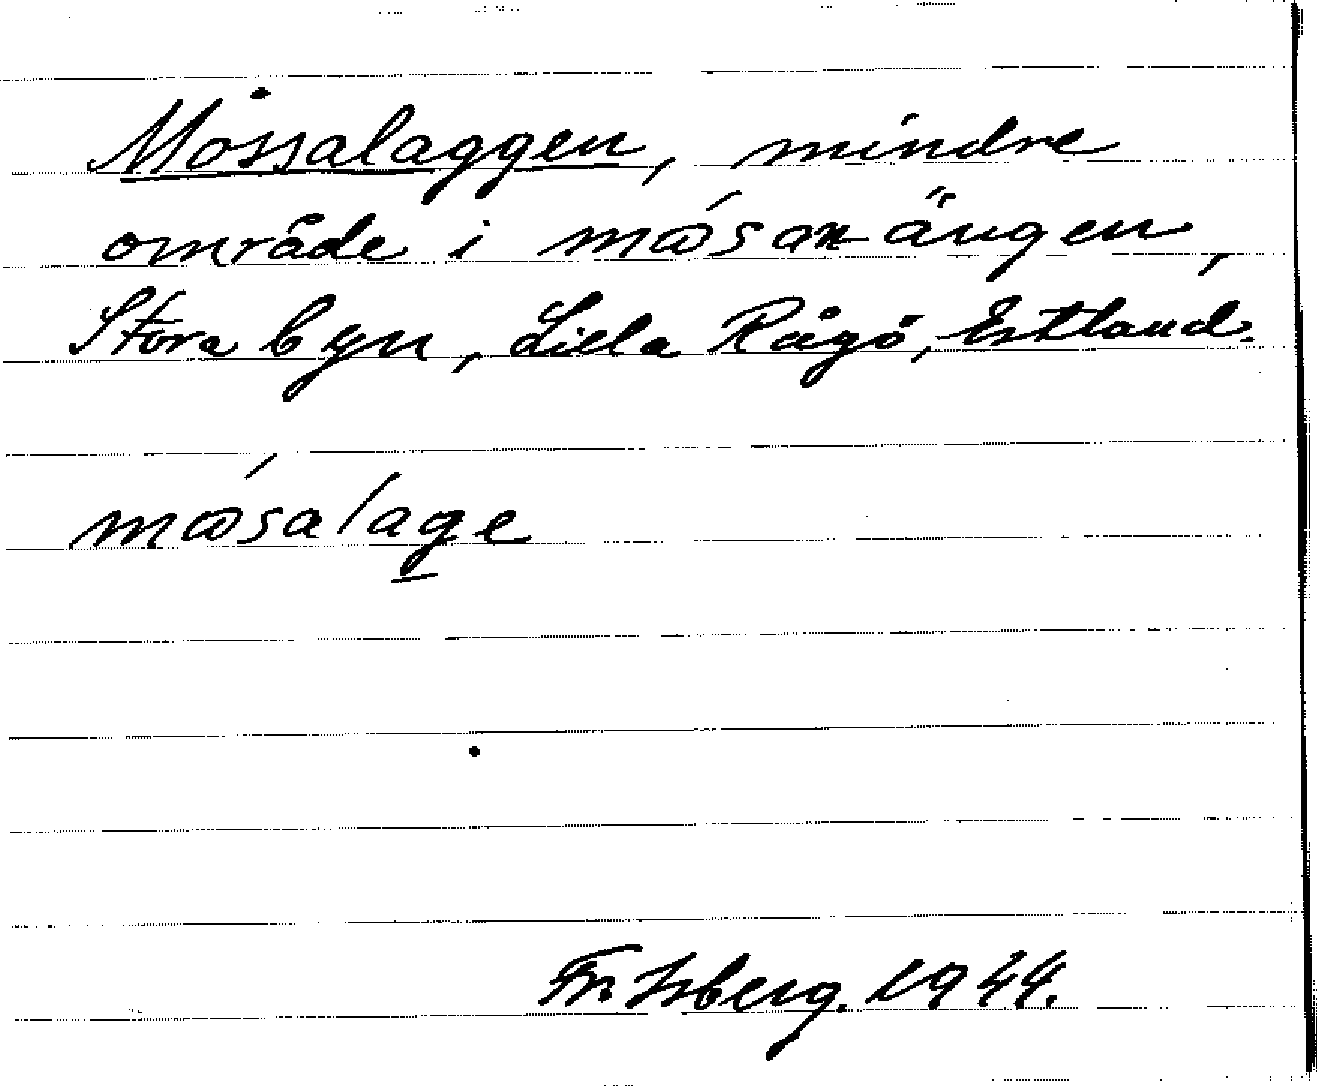 Mössalaggen, mindre
område i mɷ́san ängen,
Stora byn, Lilla Rågö, Estland.
mɷ́salage
1944.